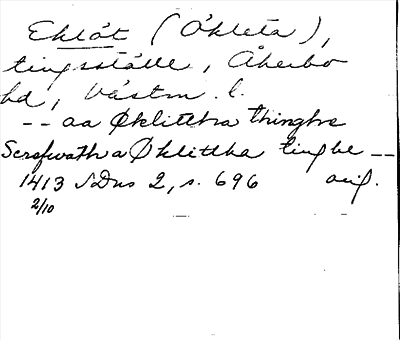 Eklåt (Ökleta),
tingsställe, Åkerbo
hd, Västm. l.
-- aa Øklittha thinghe
a Øklittha tingbe --
1413 SDns 2, s. 696 orig.
2/10